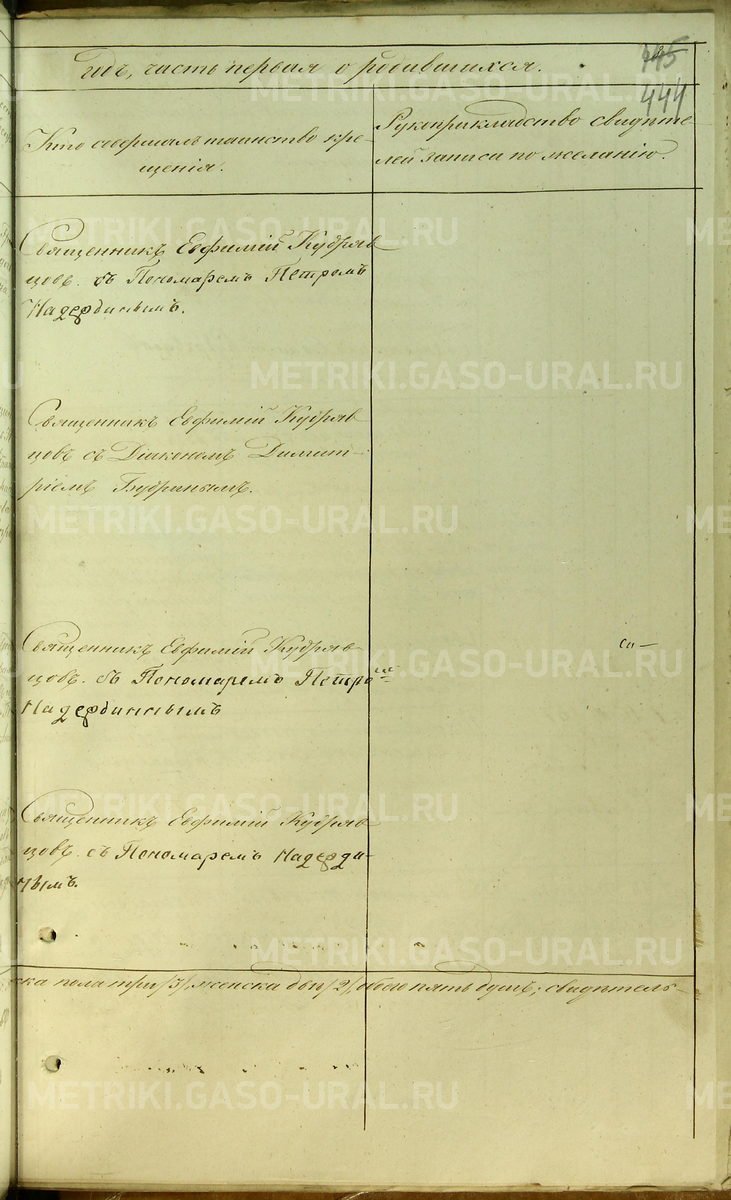 445
годъ, часть первая о родившихся.
444
Кто совершалъ таинство кре-
щенія.
Рукоприкладство свидѣте-
лей записи по желанію.
Священникъ Евфимій Кудряв
цовъ. съ Пономаремъ Петромъ
Надеждинымъ.
Священникъ Евфимій Кудряв
цовъ съ Діакономъ Димит-
ріемъ Будринымъ.
Священникъ Евфимій Кудряв-
цовъ. съ Пономаремъ Петро
Надеждинымъ
Священникъ Евфимій Кудряв
цовъ. съ Пономаремъ Надежди-
нымъ.
ска пола три /3/, женска двѣ /2/, обоего пять душъ; свидѣтель-
METRIKI.GASO-URAL.RU